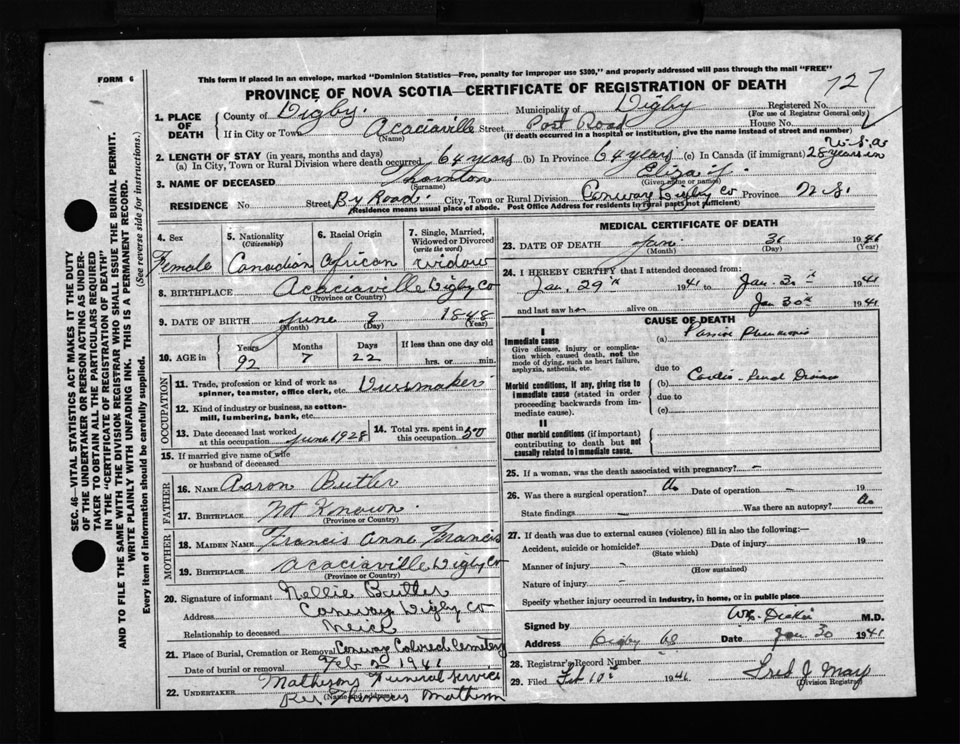 FORM 6
This form if placed in an envelope, marked "Dominion Statistics—Free, penalty for improper use $300," and properly addressed will pass through the mail "FREE"
PROVINCE OF NOVA SCOTIA—CERTIFICATE OF REGISTRATION OF DEATH
727
1. PLACE OF DEATH
County of Digby. Municipality of Digby Registered No.
(For use of Registrar General only)
If in City or Town Acaciaville Street Post Road House No.
(Name) (If death occurred in a hospital or institution, give the name instead of street and number)
U.S.A
2. LENGTH OF STAY (in years, months and days)
(a) In City, Town or Rural Division where death occurred 64 years (b) In Province 64 years (c) In Canada (if immigrant) 28 years in
3. NAME OF DECEASED Thornton Eliza J.
(Surname) (Given name or names)
RESIDENCE No Street By Road City, Town or Rural Division Conway Digby Co Province N.S.
(Residence means usual place of abode. Post Office Address for residents in rural parts not sufficient)
4. Sex Female
5. Nationality (Citizenship) Canadian
6. Racial Origin African
7. Single, Married, Widowed or Divorced (write the word) Widow
8. BIRTHPLACE Acaciaville Digby Co
(Province or Country)
9. DATE OF BIRTH June 9 1848
(Month) (Day) (Year)
10. AGE in Years Months Days If less than one day old
92 7 22 hrs. or min.
OCCUPATION
11. Trade, profession or kind of work as spinner, teamster, office clerk, etc. Dressmaker
12. Kind of industry or business, as cotton-mill, lumbering, bank, etc.
13. Date deceased last worked at this occupation June 1928
14. Total yrs. spent in this occupation 50
15. If married give name of wife or husband of deceased
FATHER
16. NAME Aaron Butler
17. BIRTHPLACE Not Known
MOTHER
18. MAIDEN NAME Francis Anne Francis
19. BIRTHPLACE Acaciaville Digby Co
(Province or Country)
20. Signature of informant Nellie Butler
Address Conway Digby Co
Relationship to deceased Neice
21. Place of Burial, Cremation or Removal Conway Colored Cemetery
Date of burial or removal Feb 2 1941
22. UNDERTAKER Mathesons Funeral Service
(Name and address)
Per Thomas
MEDICAL CERTIFICATE OF DEATH
23. DATE OF DEATH Jan. 1941
(Month) (Day) (Year)
24. I HEREBY CERTIFY that I attended deceased from:
Jan. 29th 1941 to Jan. 30th 1941
and last saw h alive on Jan 30th 1941
CAUSE OF DEATH
I
Immediate cause
Give disease, injury or complication which caused death, not the mode of dying, such as heart failure, asphyxia, asthenia, etc.
(a) Pneumonia
due to
Morbid conditions, if any, giving rise to immediate cause (stated in order proceeding backwards from immediate cause).
(b) Cardio-Renal Disease
due to
(c)
II
Other morbid conditions (if important) contributing to death but not causally related to immediate cause.
25. If a woman, was the death associated with pregnancy? —
26. Was there a surgical operation? No Date of operation — 19
State findings — Was there an autopsy? No
27. If death was due to external causes (violence) fill in also the following:—
Accident, suicide or homicide? Date of injury 19
(State which)
Manner of injury
(How sustained)
Nature of injury
Specify whether injury occurred in industry, in home, or in public place
Signed by M.D.
Address Digby NS Date Jan. 30 1941
28. Registrar's Record Number
29. Filed Feb 10 1941 Fred J May
(Division Registrar)
SEC. 46—VITAL STATISTICS ACT MAKES IT THE DUTY
OF THE UNDERTAKER OR PERSON ACTING AS UNDER-
TAKER TO OBTAIN ALL THE PARTICULARS REQUIRED
IN THE "CERTIFICATE OF REGISTRATION OF DEATH"
AND TO FILE THE SAME WITH THE DIVISION REGISTRAR WHO SHALL ISSUE THE BURIAL PERMIT.
WRITE PLAINLY WITH UNFADING INK. THIS IS A PERMANENT RECORD.
Every item of information should be carefully supplied. (See reverse side for instructions.)